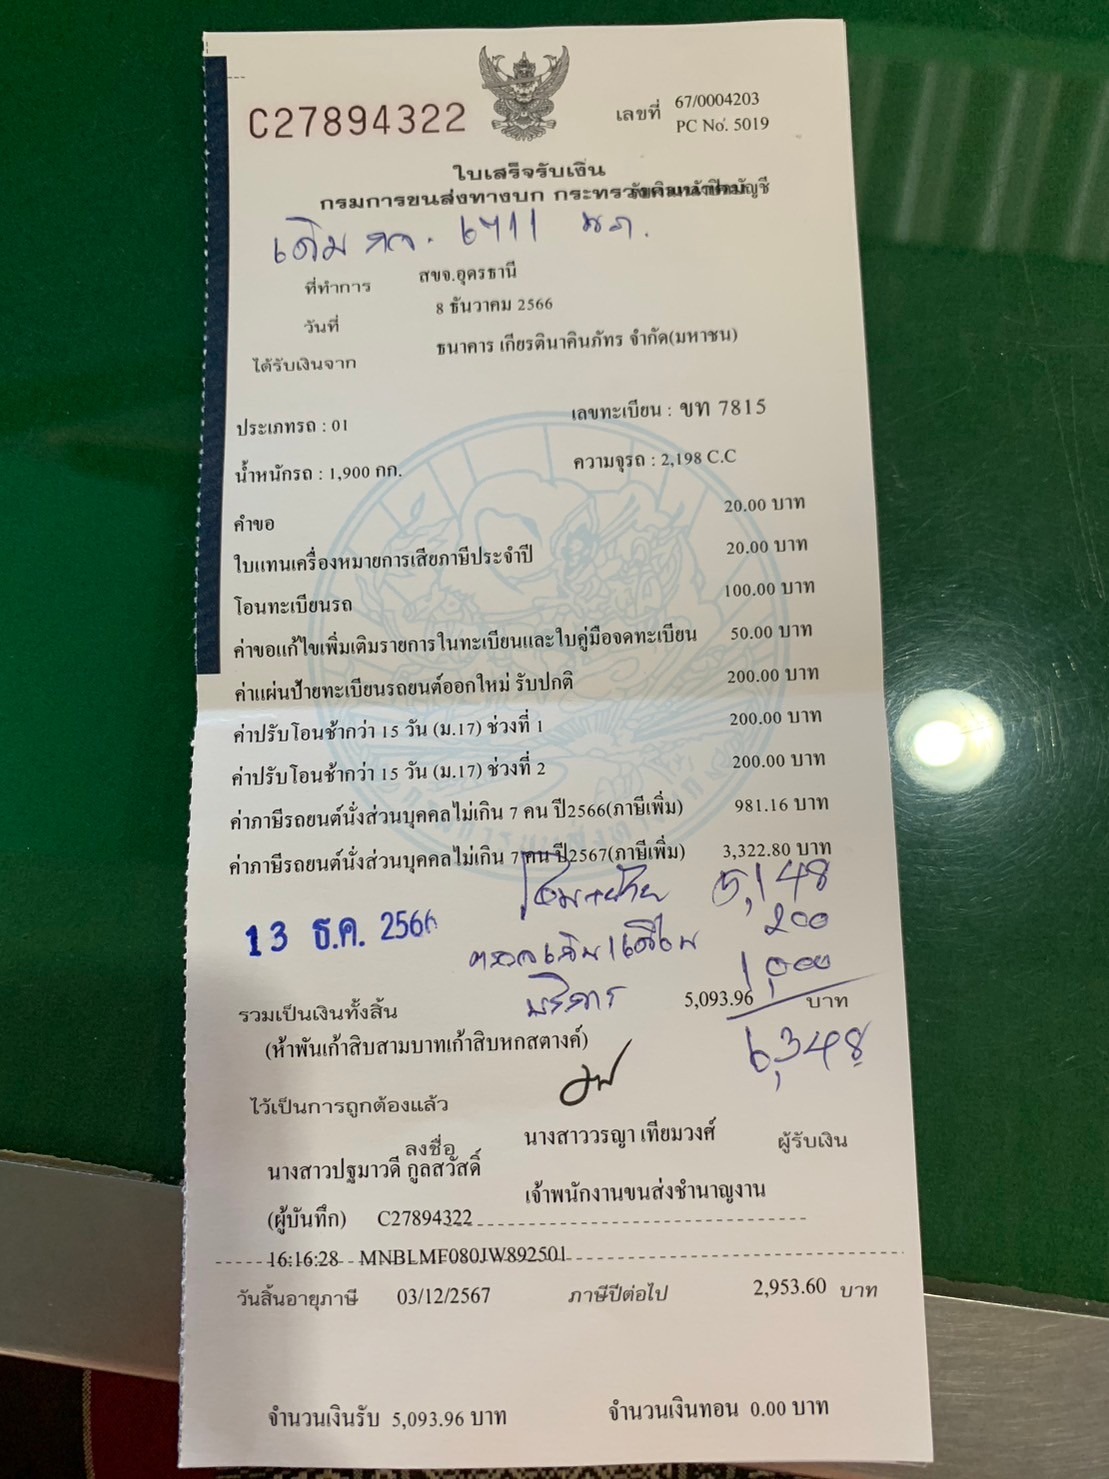 C27894322
เลขที่ 67/0004203
PC No. 5019
ใบเสร็จรับเงิน
กรมการขนส่งทางบก กระทรวงคมนาคม
เดิม กจ. 6711 นภ.
ที่ทำการ สขจ.อุดรธานี
วันที่ 8 ธันวาคม 2566
ได้รับเงินจาก ธนาคาร เกียรตินาคินภัทร จำกัด(มหาชน)
ประเภทรถ : 01 เลขทะเบียน : ขท 7815
น้ำหนักรถ : 1,900 กก. ความจุรถ : 2,198 C.C
คำขอ 20.00 บาท
ใบแทนเครื่องหมายการเสียภาษีประจำปี 20.00 บาท
โอนทะเบียนรถ 100.00 บาท
ค่าขอแก้ไขเพิ่มเติมรายการในทะเบียนและใบคู่มือจดทะเบียน 50.00 บาท
ค่าแผ่นป้ายทะเบียนรถยนต์ออกใหม่ รับปกติ 200.00 บาท
ค่าปรับโอนช้ากว่า 15 วัน (ม.17) ช่วงที่ 1 200.00 บาท
ค่าปรับโอนช้ากว่า 15 วัน (ม.17) ช่วงที่ 2 200.00 บาท
ค่าภาษีรถยนต์นั่งส่วนบุคคลไม่เกิน 7 คน ปี2566(ภาษีเพิ่ม) 981.16 บาท
ค่าภาษีรถยนต์นั่งส่วนบุคคลไม่เกิน 7 คน ปี2567(ภาษีเพิ่ม) 3,322.80 บาท
5,148
13 ธ.ค. 2566
200
บริการ 1,000
รวมเป็นเงินทั้งสิ้น 5,093.96 บาท
(ห้าพันเก้าสิบสามบาทเก้าสิบหกสตางค์)
6,348
ไว้เป็นการถูกต้องแล้ว
ลงชื่อ นางสาววรญา เทียมวงศ์ ผู้รับเงิน
นางสาวปฐมาวดี กูลสวัสดิ์
เจ้าพนักงานขนส่งชำนาญงาน
(ผู้บันทึก) C27894322
16:16:28 MNBLMF080JW892501
วันสิ้นอายุภาษี 03/12/2567 ภาษีปีต่อไป 2,953.60 บาท
จำนวนเงินรับ 5,093.96 บาท จำนวนเงินทอน 0.00 บาท